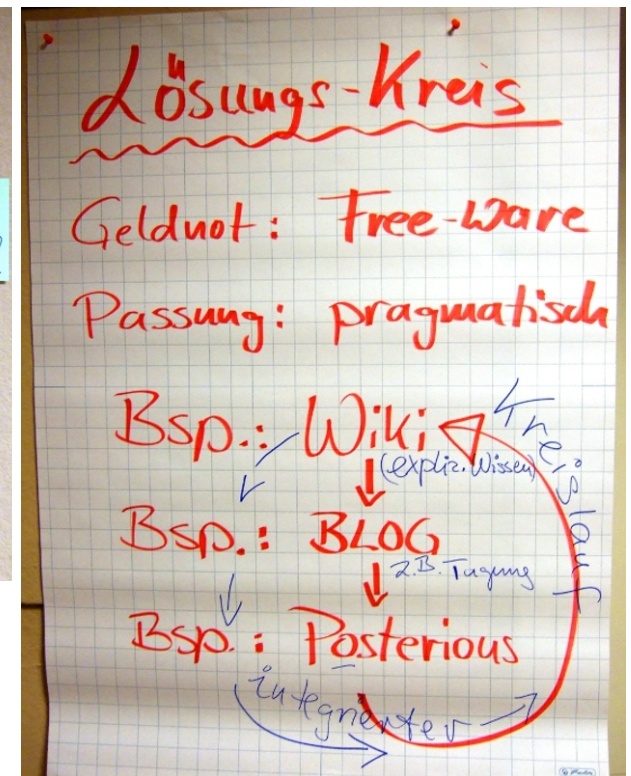 Lösungs-Kreis
Geldnot: Free-Ware
Passung: pragmatisch
Bsp.: Wiki
(expliz. Wissen)
Bsp.: BLOG
z.B. Tagung
Bsp.: Posterious
integrierter
Kreislauf